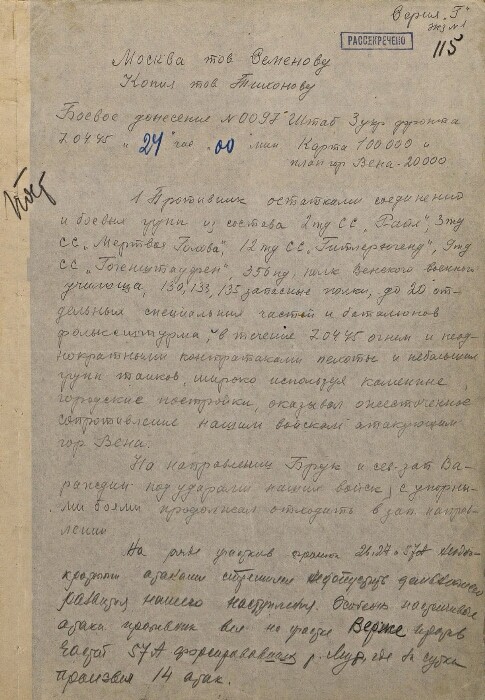 Серия "Г"
экз №1
РАССЕКРЕЧЕНО
115
Москва тов Семенову
Копия тов Тихонову
Боевое донесение №0097 Штаб 3 укр фронта
7.04.45 " 24 " час " 00 " мин Карта 100.000 и
план гор Вена - 20000
1 Противник остатками соединений
и боевых групп из состава 2 тд СС "Райх", 3 тд
СС "Мертвая Голова", 12 тд СС "Гитлерюгенд", 9 тд
СС "Гогенштауфен", 356 пд, полк Венского военного
училища, 130, 133, 135 запасные полки, до 20 от-
дельных специальных частей и баталионов
фольксштурма, в течение 7.04.45 огнем и неод-
нократными контратаками пехоты и небольших
групп танков, широко используя каменные
городские постройки, оказывал ожесточенное
сопротивление нашим войскам атакующим
гор Вена.
На направлении Брук и сев-зап Ва-
раждин под ударами наших войск, с упорны-
ми боями продолжал отходить в зап. направ-
лении
На ряде участков фронта 26, 27 и 57А неодно-
кратными атаками стремился недопустить дальнейшего
развития нашего наступления. Особенно настойчивые
атаки противник вел на участке Верже против
частей 57А форсировавших р. Мур, где за сутки
произвел 14 атак.